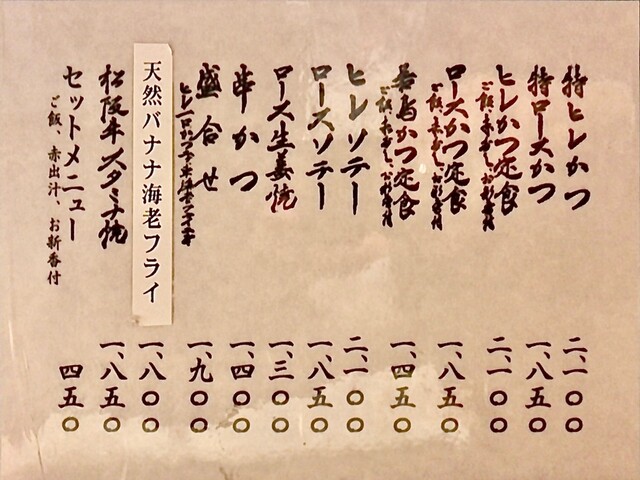 特ヒレかつ 二、一〇〇
特ロースかつ 一、八五〇
ヒレかつ定食 二、一〇〇
ご飯、赤だし、お新香付
ロースかつ定食 一、八五〇
ご飯、赤だし、お新香付
かつ定食 一、四五〇
ご飯、赤だし、お新香付
ヒレソテー 二、一〇〇
ロースソテー 一、八五〇
ロース生姜焼 一、三〇〇
串かつ 一、四〇〇
盛合せ 一、九〇〇
天然バナナ海老フライ 一、八〇〇
松阪牛スタミナ焼 一、八五〇
セットメニュー 四五〇
ご飯、赤出汁、お新香付